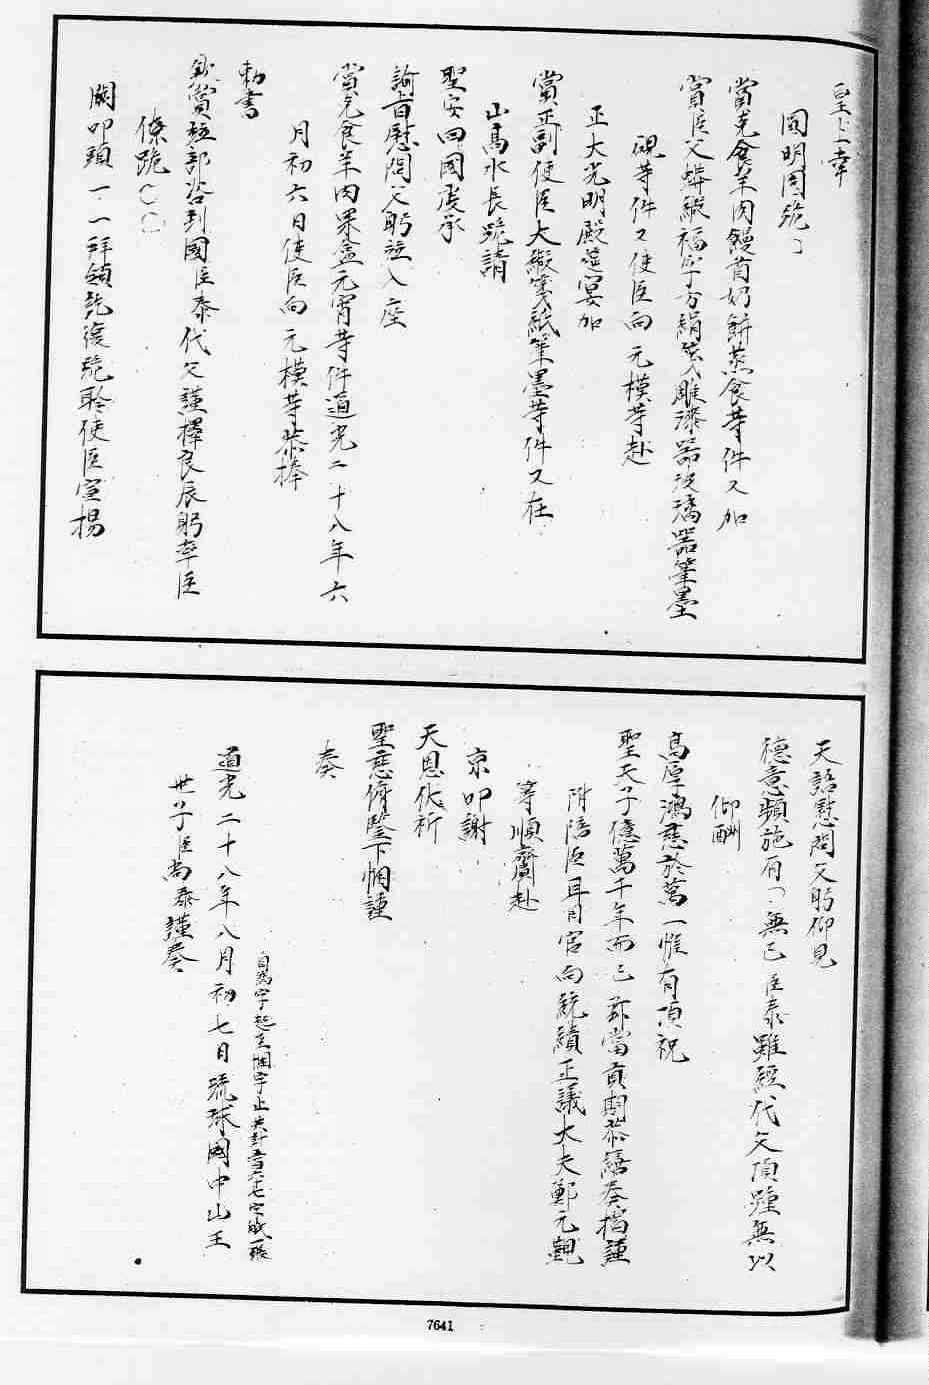 皇上幸
圓明園跪
賞克食羊肉饅首奶餅蒸食等件又加
賞臣父蟒緞福字方絹箋雕漆器玻璃器筆墨
硯等件又使臣向元模等赴
正大光明殿筵宴加
賞正副使臣大緞箋紙筆墨等件又在
山高水長跪請
聖安回國後承
諭旨慰問父躬並入座
賞克食羊肉果盒元宵等件道光二十八年六
月初六日使臣向元模等恭捧
勅書
欽賞並部咨到國臣泰代父謹擇良辰躬率臣
僚跪
闕叩頭一一拜領訖復跪聆使臣宣揚
天語慰問父躬仰見
德意頻施有加無已臣泰雖經代父頂踵無以
仰酬
高厚鴻慈於萬一惟有頂祝
聖天子億萬千年而已茲當貢期恭繕奏摺謹
附陪臣耳目官向統績正議大夫鄭元觀
等順齎赴
京叩謝
天恩伏祈
聖慈俯鑒下悃謹
奏
自為字起至悃字止共計 字紙一張
道光二十八年八月初七日琉球國中山王
世子臣尚泰謹奏
7641